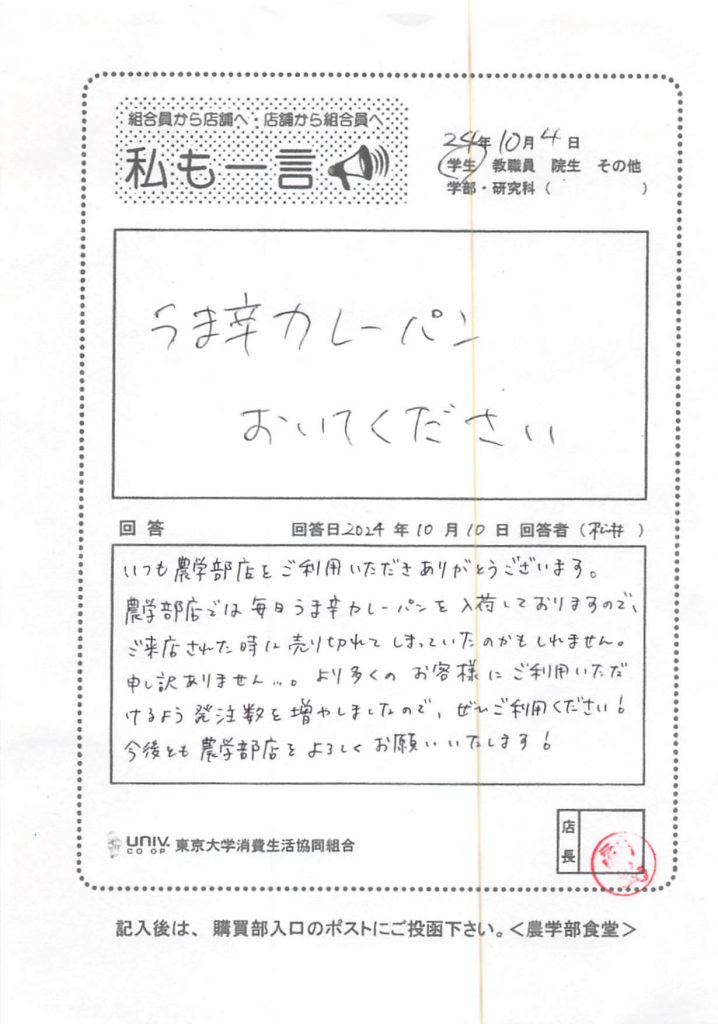 組合員から店舗へ・店舗から組合員へ
私も一言
24年10月4日
学生 教職員 院生 その他
学部・研究科( )
うま辛カレーパン
おいてください
回答 回答日2024年10月10日 回答者(松井)
いつも農学部店をご利用いただきありがとうございます。
農学部店では毎日うま辛カレーパンを入荷しておりますので、
ご来店された時に売り切れてしまっていたのかもしれません。
申し訳ありません…。より多くのお客様にご利用いただ
けるよう発注数を増やしましたので、ぜひご利用ください!
今後とも農学部店をよろしくお願いいたします!
UNIV.
CO OP
東京大学消費生活協同組合
店長
記入後は、購買部入口のポストにご投函下さい。<農学部食堂>